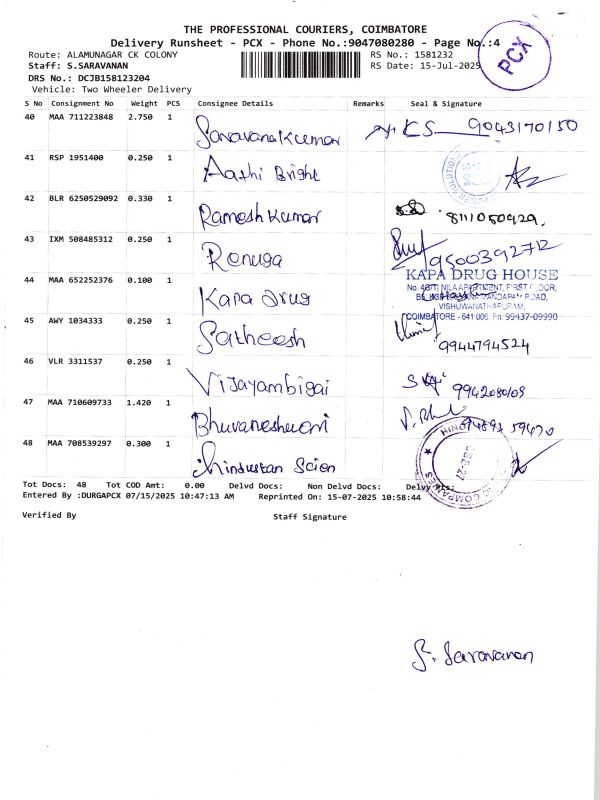 THE PROFESSIONAL COURIERS, COIMBATORE
Delivery Runsheet - PCX - Phone No.:9047080280 - Page No.:4
Route: ALAMUNAGAR CK COLONY
RS No.: 1581232
Staff: S.SARAVANAN
RS Date: 15-Jul-2025
DRS No.: DCJB158123204
Vehicle: Two Wheeler Delivery
PCX
S No Consignment No Weight PCS Consignee Details Remarks Seal & Signature
40 MAA 711223848 2.750 1 Saravanakumar 9043170150
41 RSP 1951400 0.250 1 Aathi Bright
42 BLR 6250529092 0.330 1 Ramesh Kumar 8111050929.
43 IXM 508485312 0.250 1 Renuga 9500392712
44 MAA 652252376 0.100 1 Kapa Drug
KAPA DRUG HOUSE
No. 46/11, NILA APARTMENT, FIRST FLOOR,
MANDAPAM ROAD,
VISHUWANATHAPURAM,
COIMBATORE - 641 006. Ph: 99437-09990
45 AWY 1034333 0.250 1 Satheesh 9944794524
46 VLR 3311537 0.250 1 Vijayambigai
47 MAA 710609733 1.420 1 Bhuvaneshwari
48 MAA 708539297 0.300 1 hindustan Scien
Tot Docs: 48 Tot COD Amt: 0.00 Delvd Docs: Non Delvd Docs: Delvy Pts:
Entered By :DURGAPCX 07/15/2025 10:47:13 AM Reprinted On: 15-07-2025 10:58:44
Verified By Staff Signature
S. Saravanan